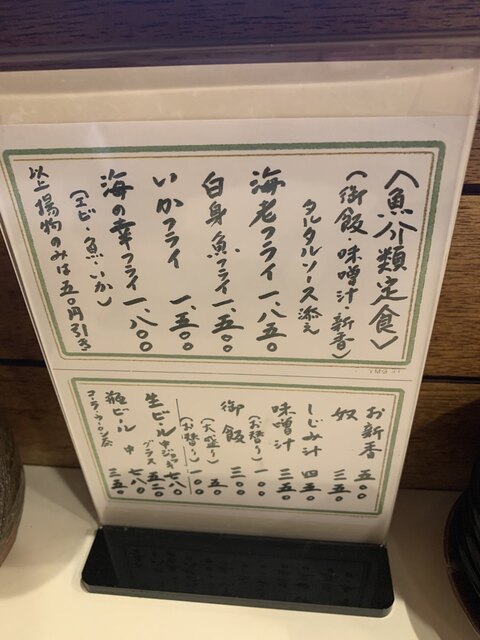 〈魚介類定食〉
(御飯・味噌汁・新香)
タルタルソース添え
海老フライ 一、八五〇
白身魚フライ 一、五〇〇
いかフライ 一、五〇〇
海の幸フライ 一、八〇〇
(エビ・魚・いか)
以上揚物のみは五〇円引き
お新香 五〇〇
奴 三五〇
しじみ汁 四五〇
味噌汁 三五〇
(お替り) 一〇〇
御飯 三〇〇
(大盛り) 五〇
(お替り) 一〇〇
生ビール 中ジョッキ 七八〇
グラス 五二〇
瓶ビール 中 七八〇
コーラ・ウーロン茶 三五〇